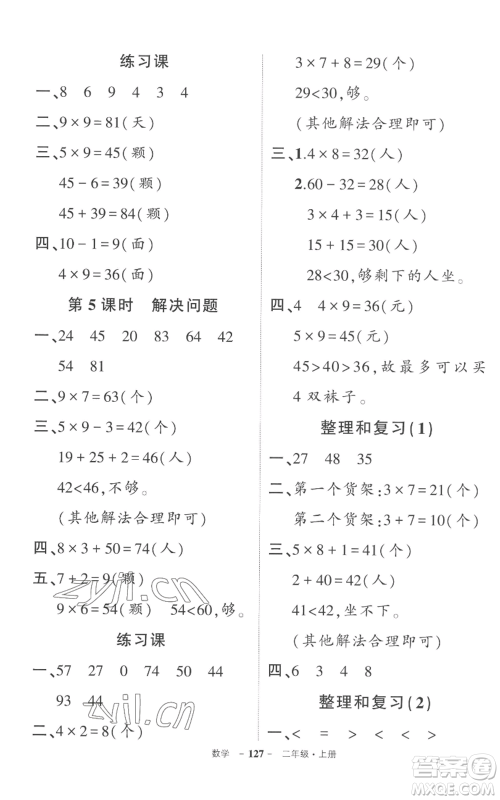 练习课
一、8 6 9 4 3 4
二、9×9=81(天)
三、5×9=45(颗)
45-6=39(颗)
45+39=84(颗)
四、10-1=9(面)
4×9=36(面)
第5课时 解决问题
一、24 45 20 83 64 42
54 81
二、9×7=63(个)
三、5×9-3=42(个)
19+25+2=46(人)
42<46,不够。
(其他解法合理即可)
四、8×3+50=74(人)
五、7+2=9(条)
9×6=54(个) 54<60,够。
练习课
一、57 27 0 74 50 44
93 44
二、4×2=8(个)
3×7+8=29(个)
29<30,够。
(其他解法合理即可)
三、1.4×8=32(人)
2.60-32=28(人)
3×4+3=15(人)
15+15=30(人)
28<30,够剩下的人坐。
四、4 4×9=36(元)
5×9=45(元)
45>40>36,故最多可以买
4双袜子。
整理和复习(1)
一、27 48 35
二、第一个货架:3×7=21(个)
第二个货架:3+7=10(个)
三、5×8+1=41(个)
2+40=42(人)
41<42,坐不下。
(其他解法合理即可)
四、6 3 4 8
整理和复习(2)
一、< = > < < >
数学 -127- 二年级·上册
zyjl.cn
zyjl.cn
答案圈
MXQE.COM